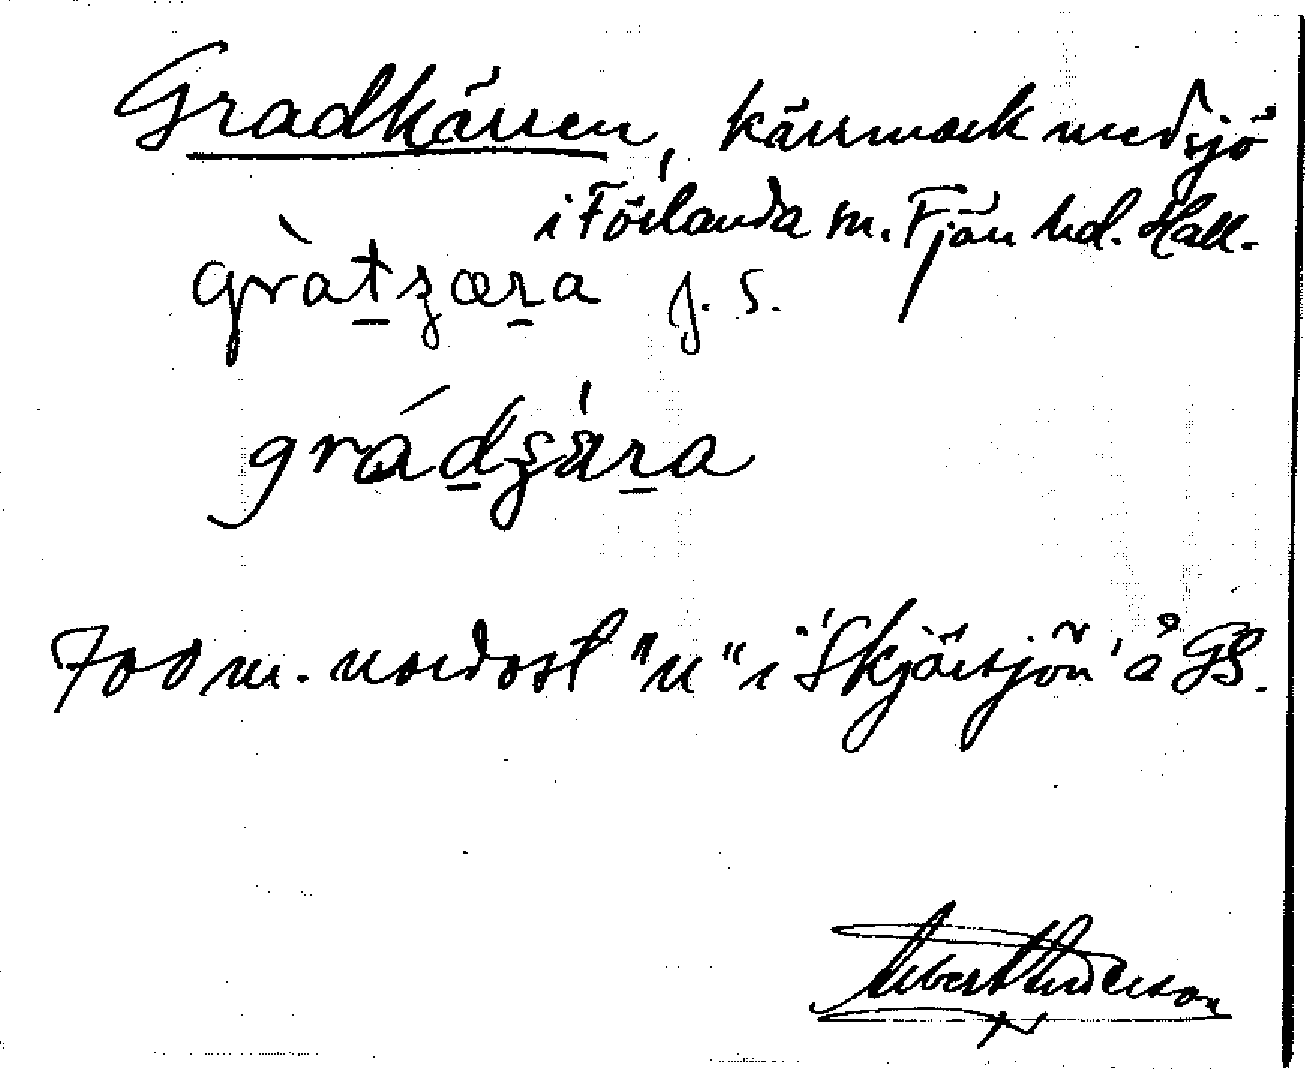 Gradkärren, kärrmark med sjö
i Förlanda sn. Fjäre hd. Hall.
gràtʒæra J. S.
grádʒära
700 m. nordost "n" i 'Skjärsjön' å GS.
Albert Anderson